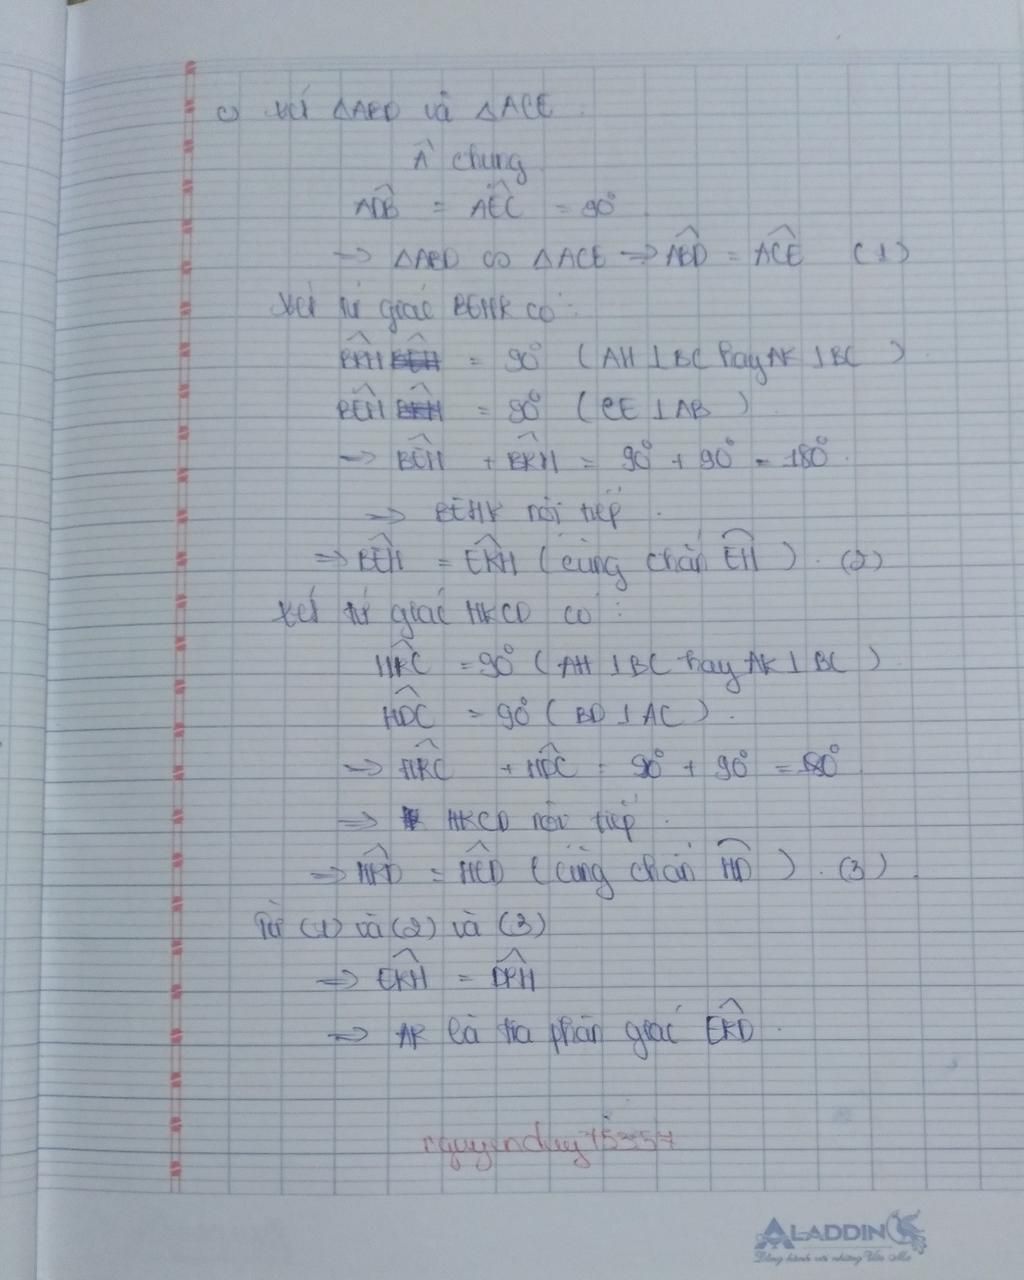 c) Xét ΔABD và ΔACE
Â chung
ADB = AEC = 90°
=> ΔABD ∽ ΔACE => ABD = ACE (1)
Xét tứ giác BEHK có:
BKH = 90° (AH ⊥ BC hay AK ⊥ BC)
BEH = 90° (CE ⊥ AB)
=> BEH + BKH = 90° + 90° = 180°
=> BEHK nội tiếp.
=> BEH = EKH (cùng chắn EH). (2)
Xét tứ giác HKCD có:
HKC = 90° (AH ⊥ BC hay AK ⊥ BC)
HDC = 90° (BD ⊥ AC).
=> HKC + HDC = 90° + 90° = 180°
=> HKCD nội tiếp.
=> HKD = HCD (cùng chắn HD). (3)
Từ (1) và (2) và (3)
=> EKH = DKH
=> AK là tia phân giác EKD.
nguyenduy75357
ALADDIN
Đồng hành với những Ước Mơ